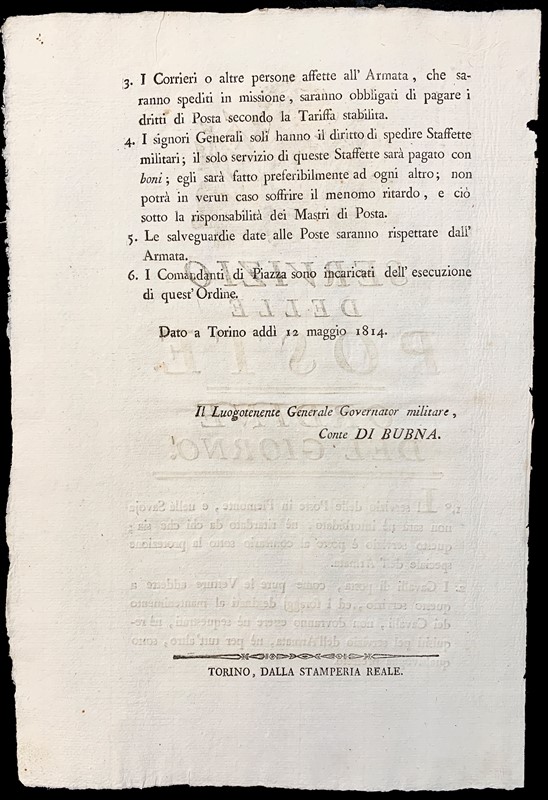 3. I Corrieri o altre persone affette all' Armata, che sa-
ranno spediti in missione, saranno obbligati di pagare i
dritti di Posta secondo la Tariffa stabilita.
4. I signori Generali soli hanno il diritto di spedire Staffette
militari; il solo servizio di queste Staffette sarà pagato con
boni; egli sarà fatto preferibilmente ad ogni altro; non
potrà in verun caso soffrire il menomo ritardo, e ciò
sotto la risponsabilità dei Mastri di Posta.
5. Le salveguardie date alle Poste saranno rispettate dall'
Armata.
6. I Comandanti di Piazza sono incaricati dell' esecuzione
di quest' Ordine.
Dato a Torino addì 12 maggio 1814.
Il Luogotenente Generale Governator militare,
Conte DI BUBNA.
SERVIZIO
DELLE
POSTE.
ORDINE
DEL GIORNO.
TORINO, DALLA STAMPERIA REALE.